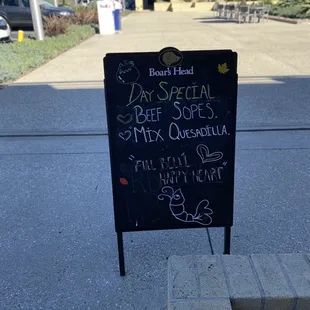 Boar's Head
Day Special
Beef Sopes.
Mix Quesadilla.
"Full Belly
Happy Heart"